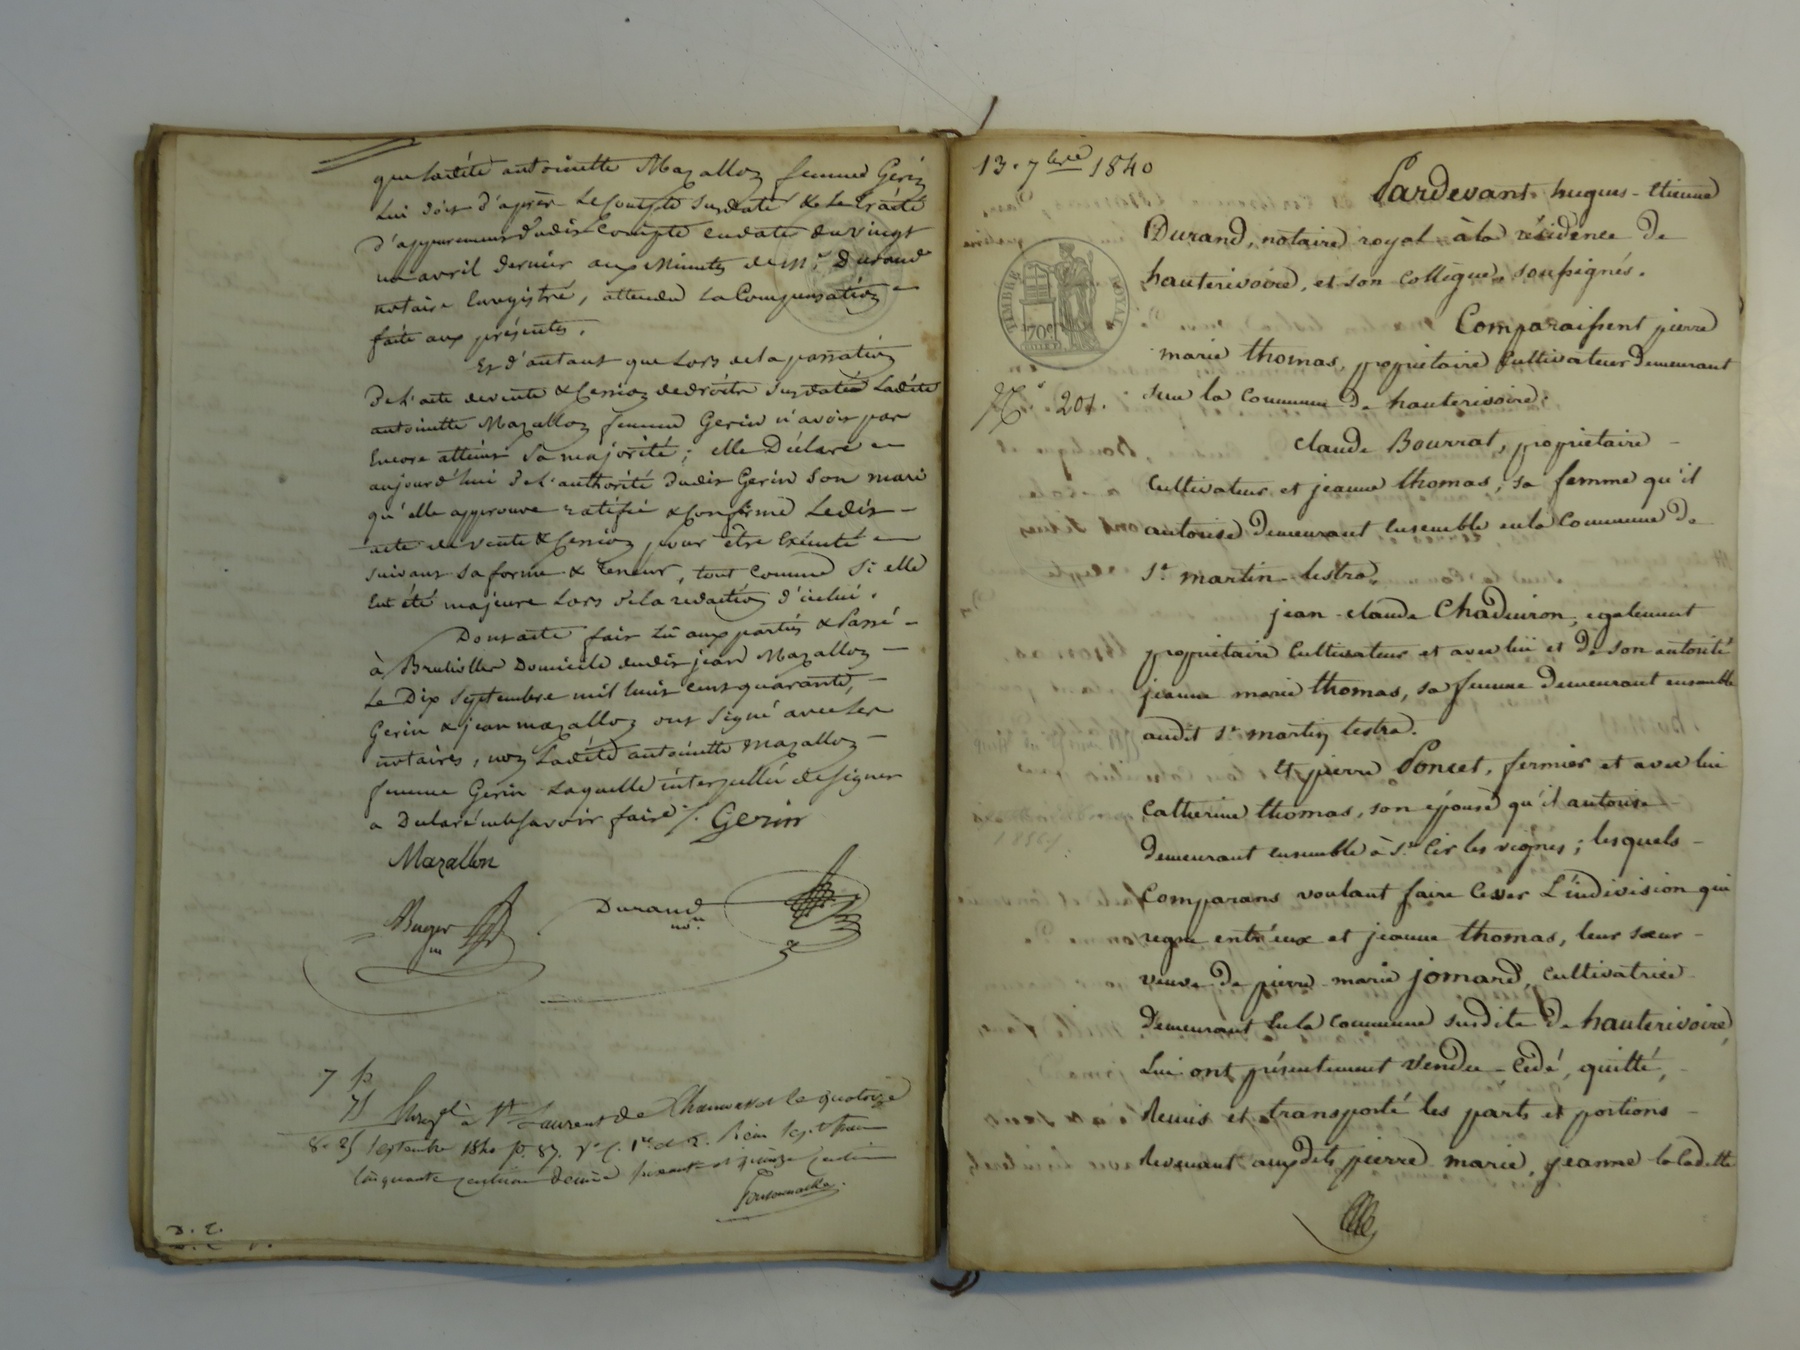 que ladite antoinette Mazallon femme Gerin
lui doit d'après le compte susdaté & le traité
d'appurement dudit compte endate du vingt
un avril dernier aux minutes de Me. Durand
notaire Enregistré, attendu la Compensation
faite aux présentes.
Et d'autant que lors de la passation
De l'acte de vente & Cession de droits susdatés Ladite
antoinette Mazallon femme Gerin n'avoit pas
Encore atteint sa majorité; elle Déclare
aujourd'hui de l'authorité dudit Gerin son mari
qu'elle approuve ratifie & Confirme Ledit
acte de vente & Cession pour être Exécuté
suivant sa forme & teneur, tout comme si elle
Eut été majeure lors de la rédaction d'icelui.
Dont acte fait Lu aux parties & Passé
à Brulioller Domicile dudit jean Mazallon
Le Dix Septembre mil huit cent quarante,
Gerin & jean mazallon ont signé avec les
notaires, non Ladite antoinette mazallon
femme Gerin Laquelle interpellée de signer
a Declaré ne savoir faire ./. Gerin
Mazallon
Buyer
Durand
no.
7 p
75 Enregt. à St. Laurent de Chamousset le quatorze
8. 25 septembre 1840 fo. 87. Vo. C. 1re et 2. Reçu sept francs
cinquante centimes decime soixante et quinze centimes
D. E.
13. 7bre 1840
Pardevant hugues-Etienne
Durand, notaire royal à la résidence de
hauterivoire, et son collègue, soussignés.
TIMBRE ROYAL
70c
Comparaissent pierre
marie thomas, propriétaire cultivateur demeurant
No. 201.
sur la Commune De hauterivoire;
Claude Bourrat, propriétaire
cultivateur et jeanne thomas, sa femme qu'il
autorise Demeurant Ensemble en la Commune De
St. martin-lestra,
jean-claude Chaduiron, egalement
propriétaire Cultivateur et avec lui et De son autorité
jeanne marie thomas, sa femme demeurant ensemble
audit St. martin lestra.
Et pierre Poncet, fermier et avec lui
Catherine thomas, son épouse qu'il autorise
Demeurant ensemble à St. Cir les vignes; lesquels
Comparans voulant faire Cesser L'indivision qui
regne entr'eux et jeanne thomas, leur sœur
veuve De pierre-marie jomard, cultivatrice
Demeurant En la Commune susdite De hauterivoire,
Lui ont présentement Vendu-Cédé, quitté,
Remis et transporté les parts et portions
Revenant auxdits pierre marie, jeanne la Cadette